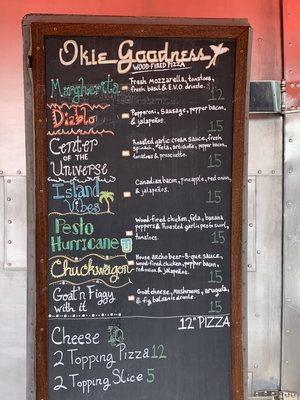 Okie Goodness
WOOD-FIRED PIZZA
Margherita
Fresh Mozzarella, tomatoes,
fresh basil & E.V.O drizzle.
12
Diablo
Pepperoni, Sausage, pepper bacon
& jalapeños.
15
Center
OF THE
Universe
Roasted garlic cream sauce, fresh
spinach, feta, artichoke, pepper bacon,
tomatoes & prosciutto.
15
Island
Vibes
Canadian bacon, pineapple, red onion
& jalapeños.
15
Pesto
Hurricane
Wood-fired chicken, feta, banana
peppers & Roasted garlic pesto swirl,
tomatoes.
15
Chuckwagon
House ancho beer-B-que sauce,
wood-fired chicken, pepper bacon,
red onion & jalapeños.
15
Goat'n Figgy
with it
Goat cheese, mushrooms, arugula
& fig balsamic drizzle.
15
12" PIZZA
Cheese 10
2 Topping Pizza 12
2 Topping Slice 5